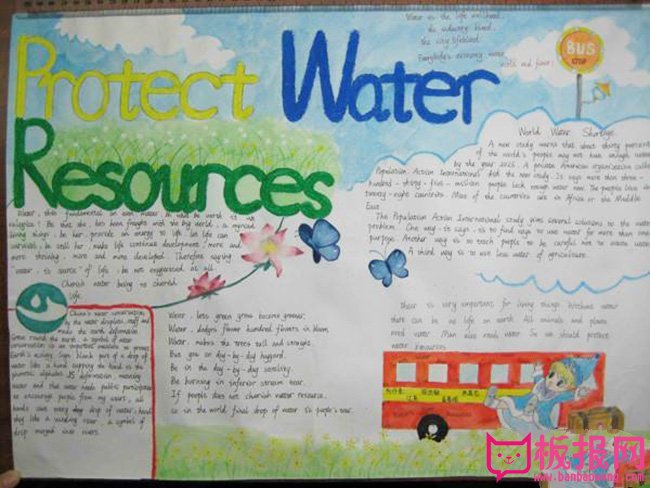 Protect Water
Resources
Water is the life
the industry blood,
the city lifeblood.
Everybody's economy water
world and power.
BUS
STOP
World Water Shortage
A new study warns that about thirty percent
of the world's people may not have enough water
by the year 2025. A private American organization called
Population Action International did the new study. It says more than three-
hundred-thirty-five-million people lack enough water now. The people live in
twenty-eight countries. Most of the countries are in Africa or the Middle
East.
The Population Action International study gives several solutions to the water
problem. One way it says, is to find ways to use water for more than one
purpose. Another way is to teach people to be careful not to waste water.
A third way is to use less water of agriculture.
Water, this fundamental
living. In her
survival, be still her, make life continue development, more and
more thriving, more and more developed. Therefore saying
"water, is source of life, be not exaggerated at all.
Cherish water being to cherish
life.
China's water conservation
by the water droplets, staff and
make the earth deformation.
Green round the earth, a symbol of water
conservation is an important measure to protect
Earth's ecology sign. Blank part of a drop of
water like a hand cupping the hand is the
phonetic alphabet JS deformation meaning
water and that water needs public participation
to encourage people from my users, all
hands care every drop of water, hand
sky like a winding river, a symbol of
drop merged into rivers.
Water, less green grass become greener,
Water, lodges flower hundred flowers in bloom.
Water, makes the trees tall and straight,
But you on day-by-day haggard.
Be in the day-by-day sterility
Be burning in inferior stream tear.
If people does not cherish water resource,
so in the world final drop of water is people's tear.
Water is very important for living things. Without water
there can be no life on earth. All animals and plants
need water. Man also needs water. So we should protect
water resources.
板报网
www.banbaowang.com